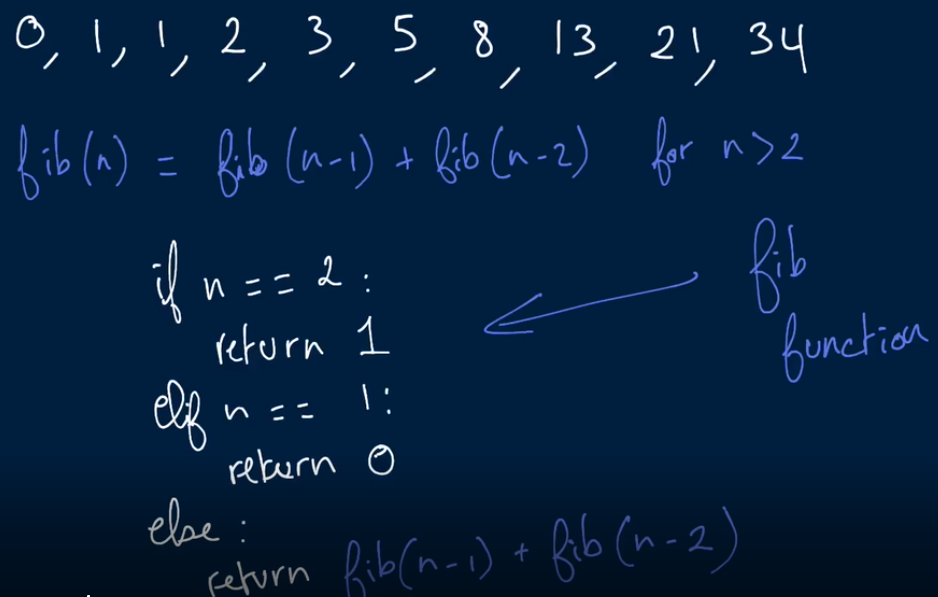 0, 1, 1, 2, 3, 5, 8, 13, 21, 34
fib(n) = fib(n-1) + fib(n-2) for n>2
if n == 2 :
return 1
elif n == 1 :
return 0
else :
return fib(n-1) + fib(n-2)
fib
function